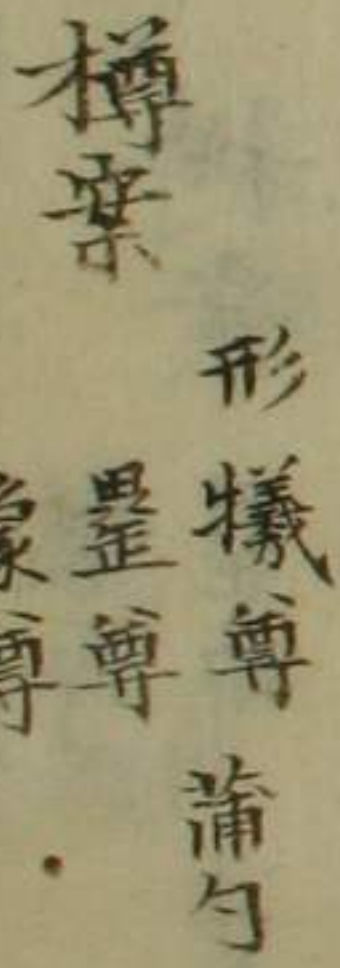 樽案
形犧尊蒲勺
尊
象尊